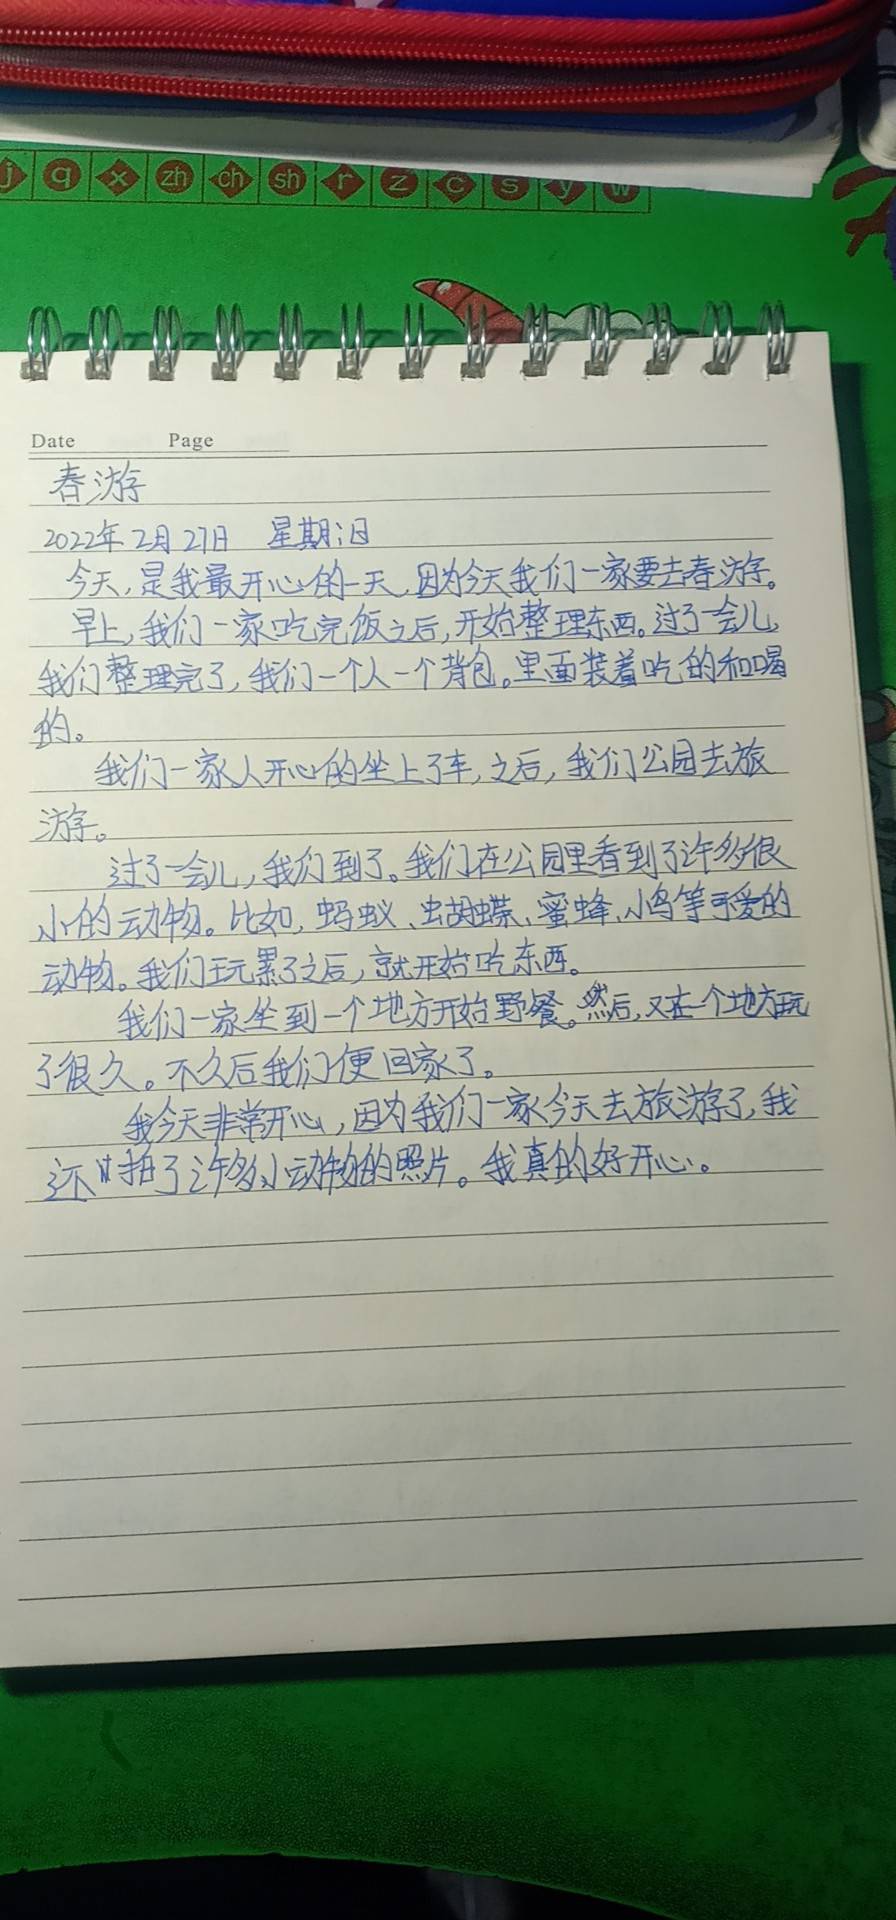 j q x zh ch sh r z c s y w
Date Page
春游
2022年2月27日 星期日
今天,是我最开心的一天,因为今天我们一家要去春游。
早上,我们一家吃完饭之后,开始整理东西。过了一会儿,
我们整理完了,我们一个人一个背包。里面装着吃的和喝
的。
我们一家人开心的坐上了车,之后,我们公园去旅
游。
过了一会儿,我们到了。我们在公园里看到了许多很
小的动物。比如,蚂蚁、蝴蝶、蜜蜂、小鸟等可爱的
动物。我们玩累了之后,就开始吃东西。
我们一家坐到一个地方开始野餐。然后,又在一个地方玩
了很久。不久后我们便回家了。
我今天非常开心,因为我们一家今天去旅游了,我
还拍了许多小动物的照片。我真的好开心。